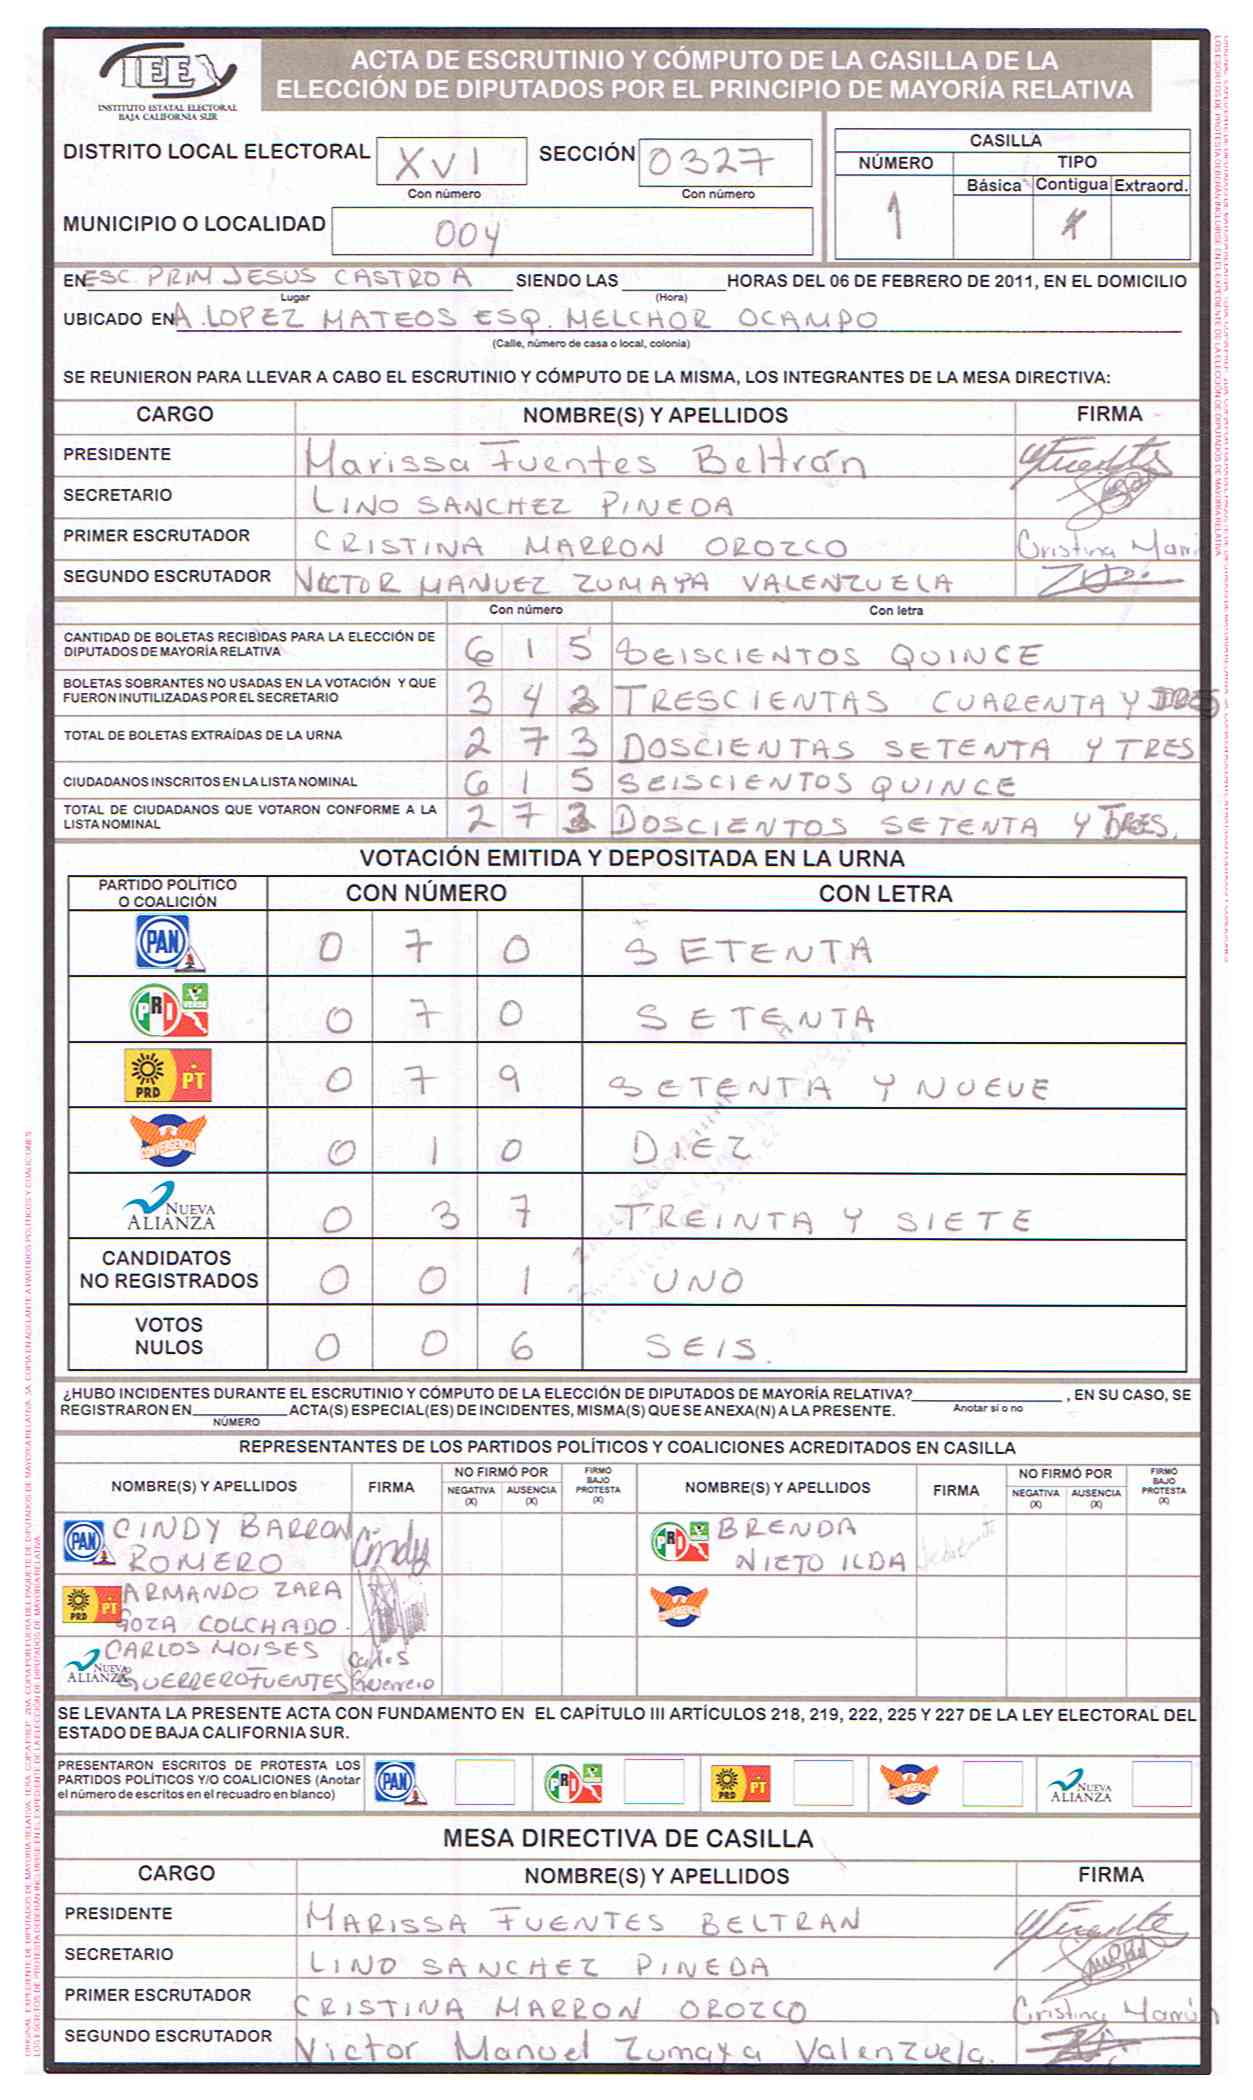 IEE
INSTITUTO ESTATAL ELECTORAL
BAJA CALIFORNIA SUR
ACTA DE ESCRUTINIO Y CÓMPUTO DE LA CASILLA DE LA
ELECCIÓN DE DIPUTADOS POR EL PRINCIPIO DE MAYORÍA RELATIVA
DISTRITO LOCAL ELECTORAL XVI SECCIÓN 0327
Con número Con número
MUNICIPIO O LOCALIDAD 004
CASILLA
NÚMERO TIPO
Básica Contigua Extraord.
1 X
EN ESC. PRIM JESUS CASTRO A SIENDO LAS HORAS DEL 06 DE FEBRERO DE 2011, EN EL DOMICILIO
Lugar (Hora)
UBICADO EN A. LOPEZ MATEOS ESQ. MELCHOR OCAMPO
(Calle, número de casa o local, colonia)
SE REUNIERON PARA LLEVAR A CABO EL ESCRUTINIO Y CÓMPUTO DE LA MISMA, LOS INTEGRANTES DE LA MESA DIRECTIVA:
CARGO NOMBRE(S) Y APELLIDOS FIRMA
PRESIDENTE Marissa Fuentes Beltrán
SECRETARIO LINO SANCHEZ PINEDA
PRIMER ESCRUTADOR CRISTINA MARRON OROZCO Cristina Marr
SEGUNDO ESCRUTADOR VICTOR MANUEZ ZUMAYA VALENZUELA
Con número Con letra
CANTIDAD DE BOLETAS RECIBIDAS PARA LA ELECCIÓN DE
DIPUTADOS DE MAYORÍA RELATIVA 6 1 5 SEISCIENTOS QUINCE
BOLETAS SOBRANTES NO USADAS EN LA VOTACIÓN Y QUE
FUERON INUTILIZADAS POR EL SECRETARIO 3 4 3 TRESCIENTAS CUARENTA Y TRES
TOTAL DE BOLETAS EXTRAÍDAS DE LA URNA 2 7 3 DOSCIENTAS SETENTA Y TRES
CIUDADANOS INSCRITOS EN LA LISTA NOMINAL 6 1 5 SEISCIENTOS QUINCE
TOTAL DE CIUDADANOS QUE VOTARON CONFORME A LA
LISTA NOMINAL 2 7 3 DOSCIENTOS SETENTA Y TRES.
VOTACIÓN EMITIDA Y DEPOSITADA EN LA URNA
PARTIDO POLÍTICO
O COALICIÓN CON NÚMERO CON LETRA
PAN 0 7 0 SETENTA
PRI VERDE 0 7 0 SETENTA
PRD PT 0 7 9 SETENTA Y NUEVE
CONVERGENCIA 0 1 0 DIEZ
NUEVA ALIANZA 0 3 7 TREINTA Y SIETE
CANDIDATOS
NO REGISTRADOS 0 0 1 UNO
VOTOS
NULOS 0 0 6 SEIS.
¿HUBO INCIDENTES DURANTE EL ESCRUTINIO Y CÓMPUTO DE LA ELECCIÓN DE DIPUTADOS DE MAYORÍA RELATIVA? , EN SU CASO, SE
REGISTRARON EN ACTA(S) ESPECIAL(ES) DE INCIDENTES, MISMA(S) QUE SE ANEXA(N) A LA PRESENTE. Anotar sí o no
NÚMERO
REPRESENTANTES DE LOS PARTIDOS POLÍTICOS Y COALICIONES ACREDITADOS EN CASILLA
NOMBRE(S) Y APELLIDOS FIRMA NO FIRMÓ POR NEGATIVA (X) AUSENCIA (X) FIRMÓ BAJO PROTESTA (X) NOMBRE(S) Y APELLIDOS FIRMA NO FIRMÓ POR NEGATIVA (X) AUSENCIA (X) FIRMÓ BAJO PROTESTA (X)
PAN CINDY BARRON Cindy PRI BRENDA
ROMERO NIETO ILDA
PRD PT ARMANDO ZARA CONVERGENCIA
GOZA COLCHADO.
NUEVA ALIANZA CARLOS MOISES Carlos
GUERRERO FUENTES Guerrero
SE LEVANTA LA PRESENTE ACTA CON FUNDAMENTO EN EL CAPÍTULO III ARTÍCULOS 218, 219, 222, 225 Y 227 DE LA LEY ELECTORAL DEL
ESTADO DE BAJA CALIFORNIA SUR.
PRESENTARON ESCRITOS DE PROTESTA LOS
PARTIDOS POLÍTICOS Y/O COALICIONES (Anotar
el número de escritos en el recuadro en blanco)
PAN PRI PRD PT CONVERGENCIA NUEVA ALIANZA
MESA DIRECTIVA DE CASILLA
CARGO NOMBRE(S) Y APELLIDOS FIRMA
PRESIDENTE MARISSA FUENTES BELTRAN
SECRETARIO LINO SANCHEZ PINEDA
PRIMER ESCRUTADOR CRISTINA MARRON OROZCO Cristina Marrón
SEGUNDO ESCRUTADOR Victor Manuel Zumaya Valenzuela.